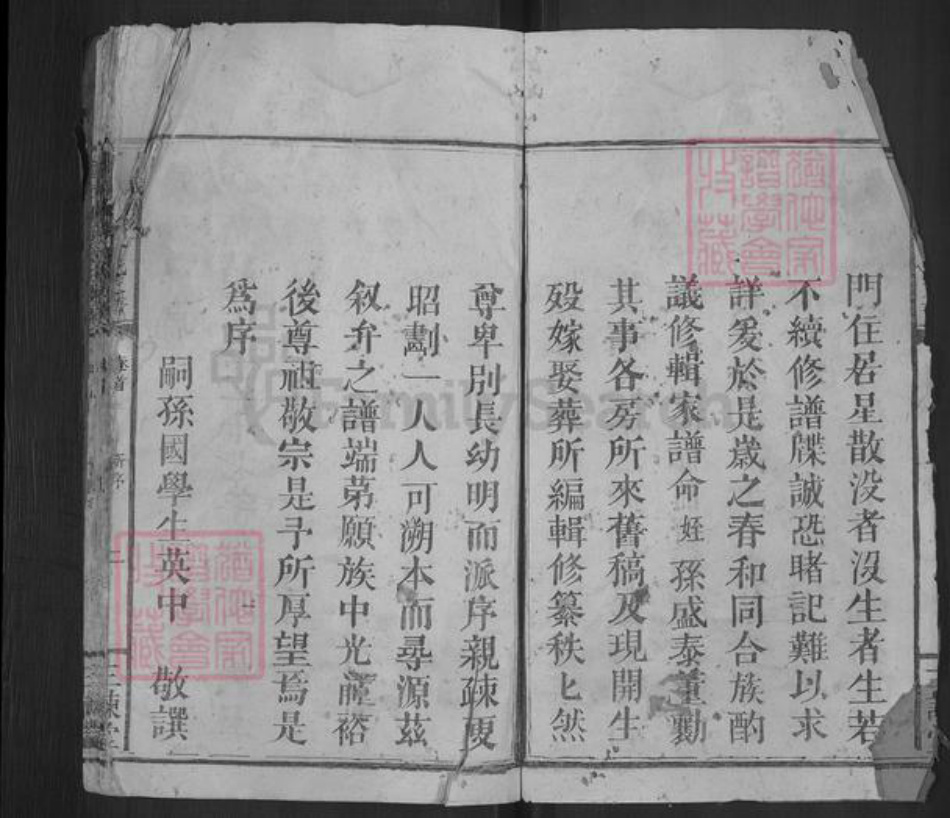 門住居星散没者沒生者生若
不續修譜牒誠恐睹記難以求
詳爰於是歲之春和同合族酌
議修輯家譜命姪孫盛泰董勷
其事各房所來舊稿及現開生
殁嫁娶葬所編輯修纂秩匕然
尊卑別長幼明而派序親疎更
昭劃一人人可溯本而尋源茲
叙弁之譜端苐願族中光前裕
後尊祖敬宗是予所厚望焉是
爲序
嗣孫國學生英中 敬譔
卷首
新序
二
三棟堂
FamilySearch